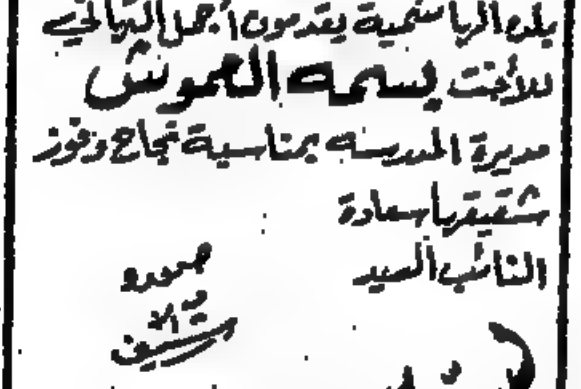 بلدة الهاشمية يقدمون أجمل التهاني
للأخت بسمه العموش
مديرة المدرسه بمناسبة نجاح وفوز
شقيقها سعادة
النائب السيد